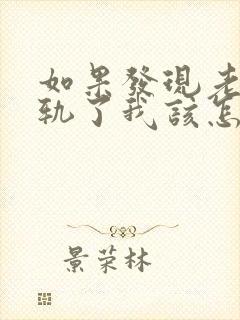 如果發現老
軌了我該怎
景荣林